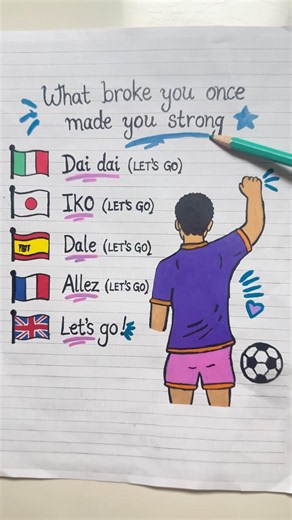 What broke you once
made you strong
Dai dai (LET'S GO)
IKO (LET'S GO)
Dale (LET'S GO)
Allez (LET'S GO)
Let's go!